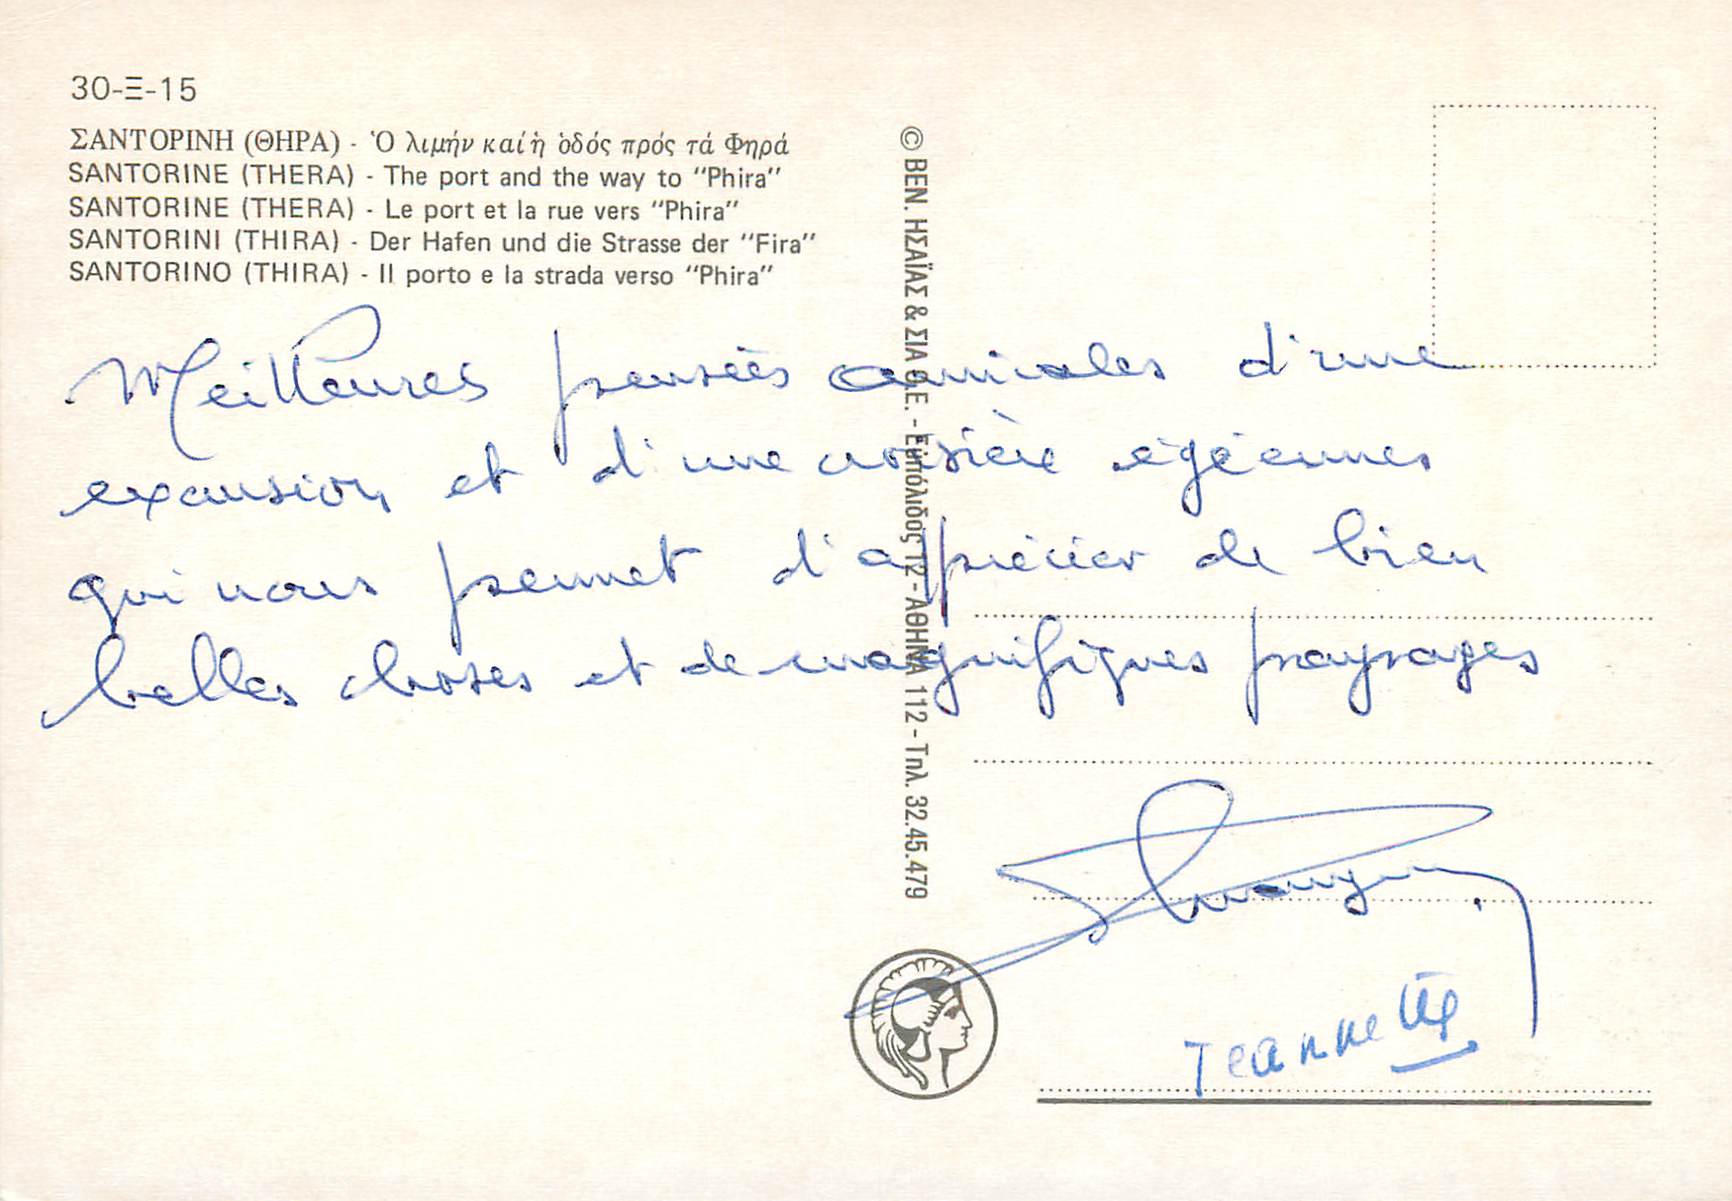 30-Ξ-15
ΣΑΝΤΟΡΙΝΗ (ΘΗΡΑ) - Ὁ λιμήν καί ἡ ὁδός πρός τά Φηρά
SANTORINE (THERA) - The port and the way to "Phira"
SANTORINE (THERA) - Le port et la rue vers "Phira"
SANTORINI (THIRA) - Der Hafen und die Strasse der "Fira"
SANTORINO (THIRA) - Il porto e la strada verso "Phira"
© ΒΕΝ. ΗΣΑΪΑΣ & ΣΙΑ Ο.Ε. - Εὐπόλιδος 12 - ΑΘΗΝΑ 112 - Τηλ. 32.45.479
Meilleures pensées amicales d'une
excursion et d'une croisière égéennes
qui nous permet d'apprécier de bien
belles choses et de magnifiques paysages
Jeannette